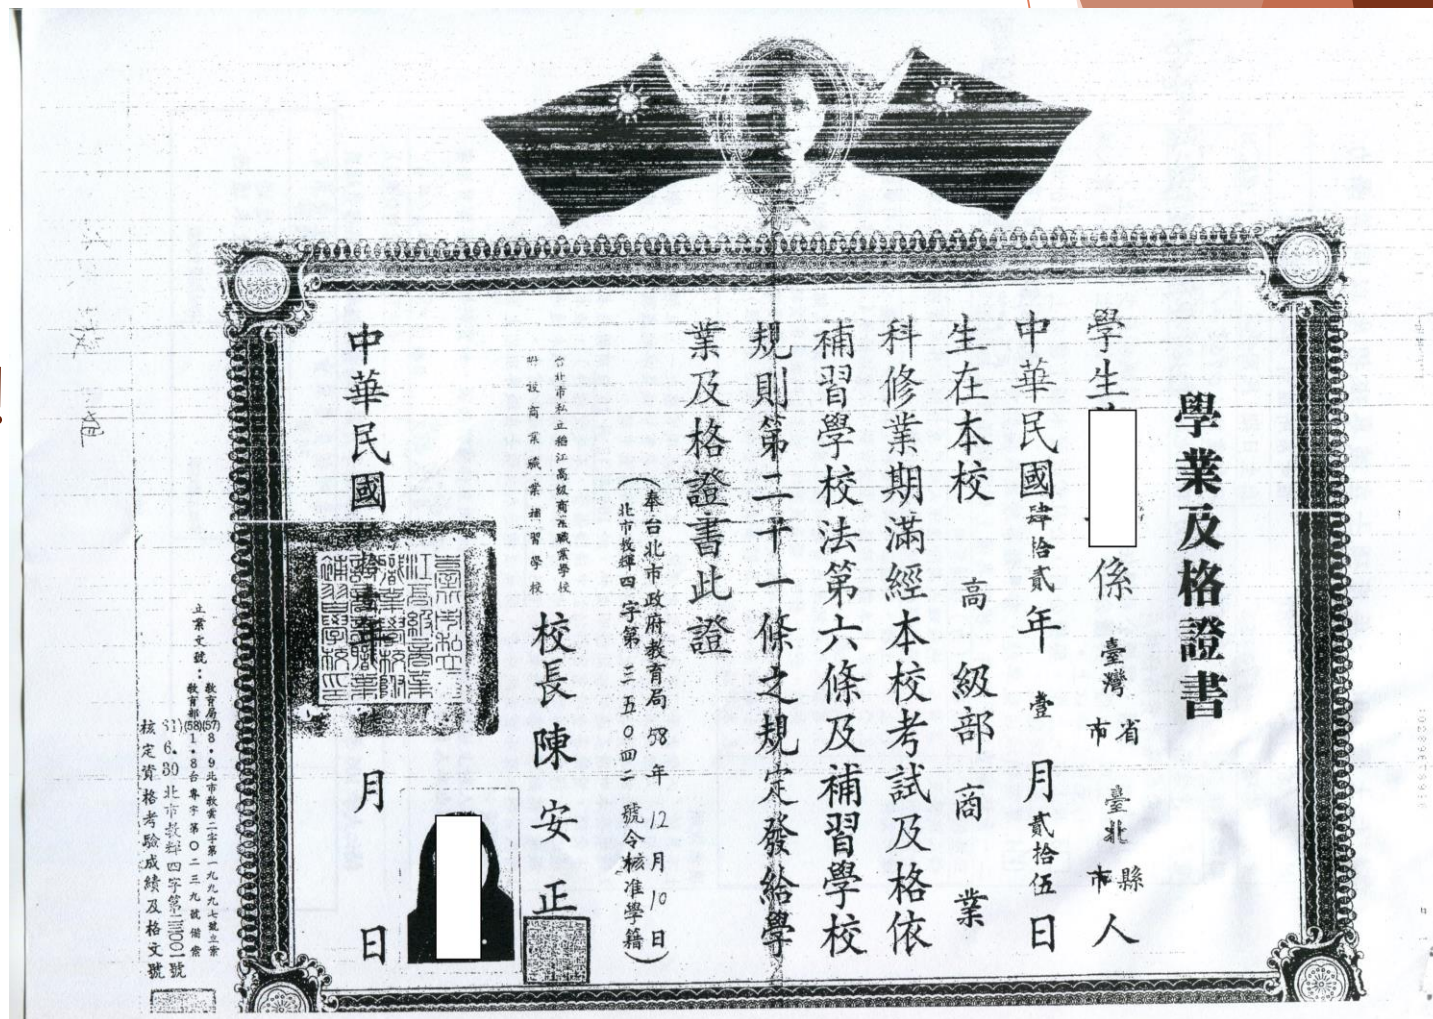 學業及格證書
學生
係
臺灣
省
市
臺北
縣
市
人
中華民國肆拾貳年壹月貳拾伍日
生在本校高級部商業
科修業期滿經本校考試及格依
補習學校法第六條及補習學校
規則第二十一條之規定發給學
業及格證書此證
(奉台北市政府教育局58年12月10日
北市教輝四字第三五0四二號令核准學籍)
台北市私立稻江高級商業職業學校
附設商業職業補習學校
校長陳安正
中華民國
年
月
日
立案文號:
教育局(57)8.9北市教雲二字第一九九九七號立案
教育部(58)1.8台專字第0二三九號備案
6.30北市教
核定資格考驗成績及格文號